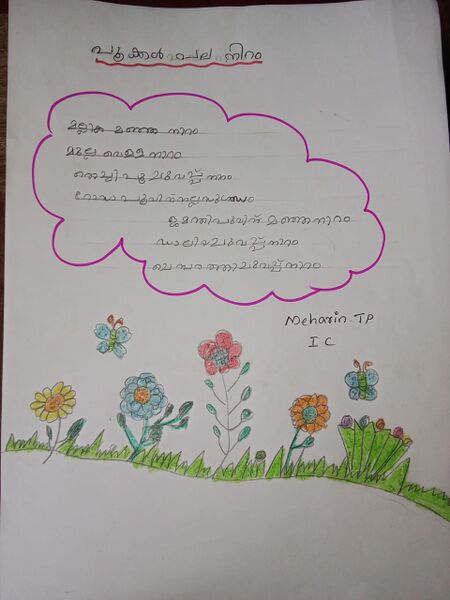 പൂക്കൾ പല നിറം
മല്ലിക മഞ്ഞ നിറം
മുല്ല വെള്ള നിറം
തെച്ചിപൂ ചുവപ്പ് നിറം
റോസാ പൂവിന് നല്ല സുഗന്ധം
ജമന്തിപൂവിന് മഞ്ഞ നിറം
ഡാലിയ ചുവപ്പ് നിറം
ചെമ്പരത്തി ചുവപ്പ് നിറം
Meharin.TP
I C